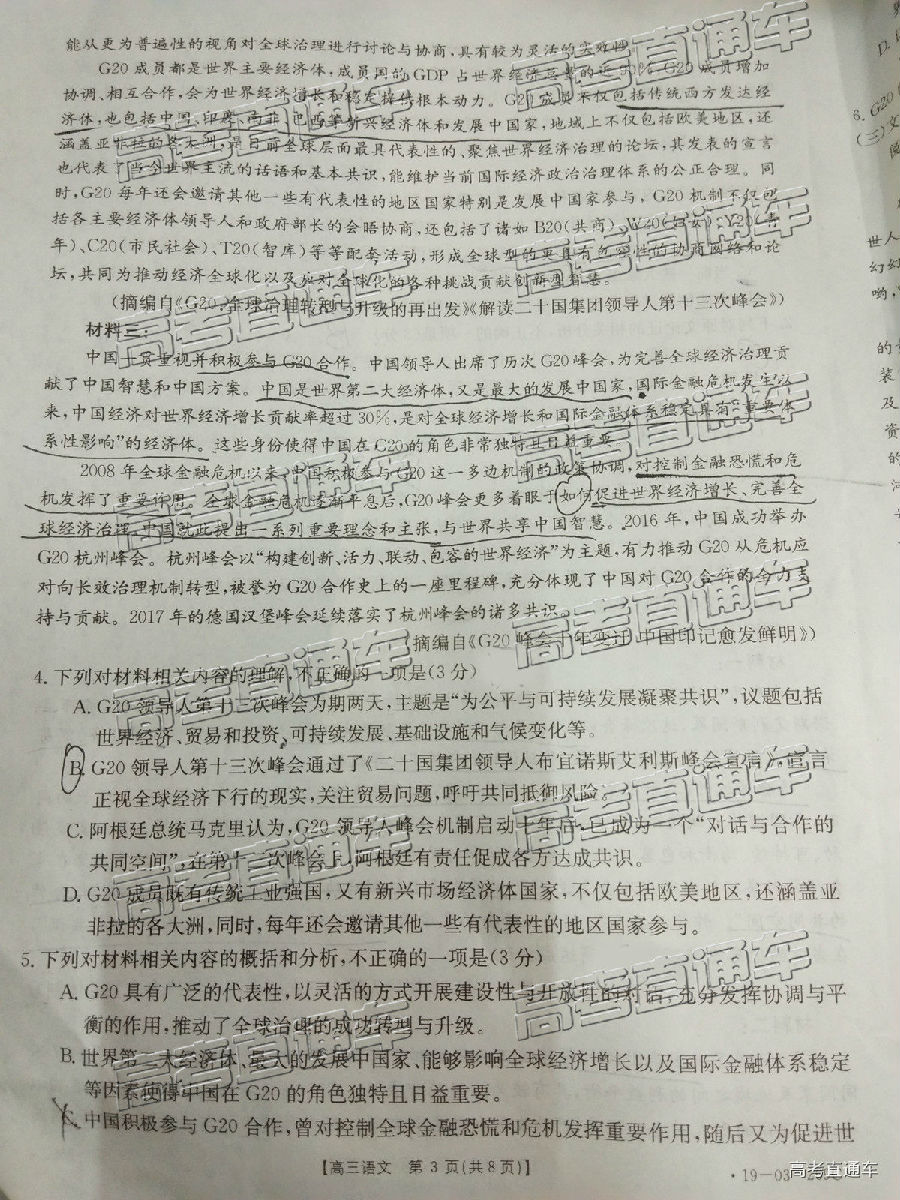 能从更为普遍性的视角对全球治理进行讨论与协商,具有较为灵活的实效性。
G20 成员都是世界主要经济体,成员国的 GDP 占世界经济总量的近 G20 成员增加
协调、相互合作,会为世界经济增长和稳定提供根本动力。G20 成员不仅包括传统西方发达经
济体,也包括中国、印度、南非、巴西等新兴经济体和发展中国家,地域上不仅包括欧美地区,还
涵盖亚非拉的各大洲,是目前全球层面最具代表性的、聚焦世界经济治理的论坛,其发表的宣言
也代表了当今世界主流的话语和基本共识,能维护当前国际经济政治治理体系的公正合理。同
时,G20 每年还会邀请其他一些有代表性的地区国家特别是发展中国家参与,G20 机制不仅包
括各主要经济体领导人和政府部长的会晤协商,还包括了诸如 B20(共商)、W20(妇女)、Y20(青
年)、C20(市民社会)、T20(智库)等等配套活动,形成全球型的更具有包容性的协商网络和论
坛,共同为推动经济全球化以及应对全球化的各种挑战贡献
(摘编自《G20:全球治理转型与升级的再出发》《解读二十国集团领导人第十三次峰会》)
材料三:
中国一贯重视并积极参与 G20 合作。中国领导人出席了历次 G20 峰会,为完善全球经济治理贡
献了中国智慧和中国方案。中国是世界第二大经济体,又是最大的发展中国家,国际金融危机发生以
来,中国经济对世界经济增长贡献率超过 30%,是对全球经济增长和国际金融体系稳定具有“重要体
系性影响”的经济体。这些身份使得中国在 G20 的角色非常独特且日益重要。
2008 年全球金融危机以来,中国积极参与 G20 这一多边机制的政策协调,对控制金融恐慌和危
机发挥了重要作用。全球金融危机逐渐平息后,G20 峰会更多着眼于如何促进世界经济增长、完善全
球经济治理,中国就此提出一系列重要理念和主张,与世界共享中国智慧。2016 年,中国成功举办
G20 杭州峰会。杭州峰会以“构建创新、活力、联动、包容的世界经济”为主题,有力推动 G20 从危机应
对向长效治理机制转型,被誉为 G20 合作史上的一座里程碑,充分体现了中国对 G20 合作的全力支
持与贡献。2017 年的德国汉堡峰会延续落实了杭州峰会的诸多共识。
(摘编自《G20 峰会十年变迁 中国印记愈发鲜明》)
4. 下列对材料相关内容的理解,不正确的一项是(3 分)
A. G20 领导人第十三次峰会为期两天,主题是“为公平与可持续发展凝聚共识”,议题包括
世界经济、贸易和投资、可持续发展、基础设施和气候变化等。
B. G20 领导人第十三次峰会通过了《二十国集团领导人布宜诺斯艾利斯峰会宣言》,宣言
正视全球经济下行的现实,关注贸易问题,呼吁共同抵御风险。
C. 阿根廷总统马克里认为,G20 领导人峰会机制启动十年后,已成为一个“对话与合作的
共同空间”,在第十三次峰会上,阿根廷有责任促成各方达成共识。
D. G20 成员既有传统工业强国,又有新兴市场经济体国家,不仅包括欧美地区,还涵盖亚
非拉的各大洲,同时,每年还会邀请其他一些有代表性的地区国家参与。
5. 下列对材料相关内容的概括和分析,不正确的一项是(3 分)
A. G20 具有广泛的代表性,以灵活的方式开展建设性与开放性的对话,充分发挥协调与平
衡的作用,推动了全球治理的成功转型与升级。
B. 世界第二大经济体、最大的发展中国家、能够影响全球经济增长以及国际金融体系稳定
等因素使得中国在 G20 的角色独特且日益重要。
C. 中国积极参与 G20 合作,曾对控制全球金融恐慌和危机发挥重要作用,随后又为促进世
【高三语文 第 3 页(共 8 页)】
高考直通车